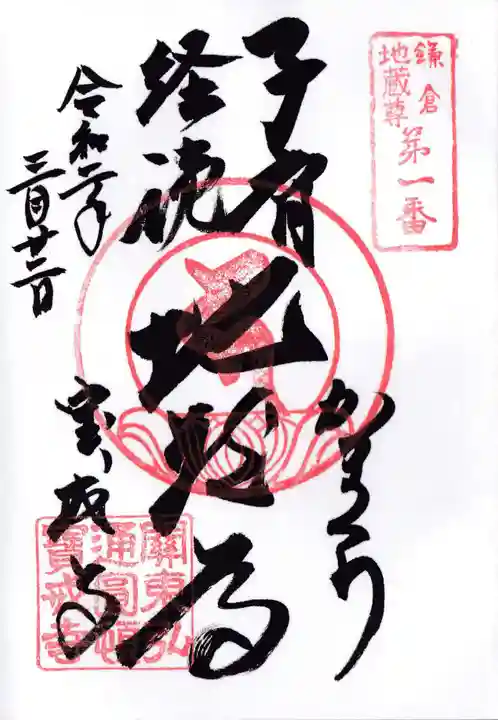 鎌倉
地蔵尊
第一番
子育
経読
地蔵尊
かまくら
令和二年
三月廿二日
宝戒寺
關東弘
通圓頓
寶戒寺